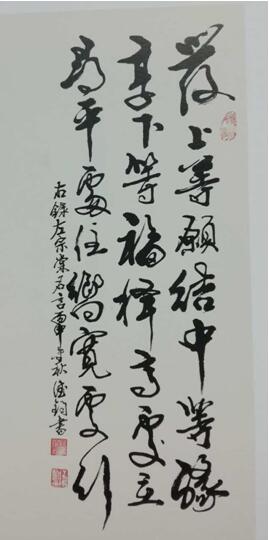 發上等願結中等緣
享下等福擇高處立
尋平處住嚮寬處行
右錄左宗棠名言丙申秋書